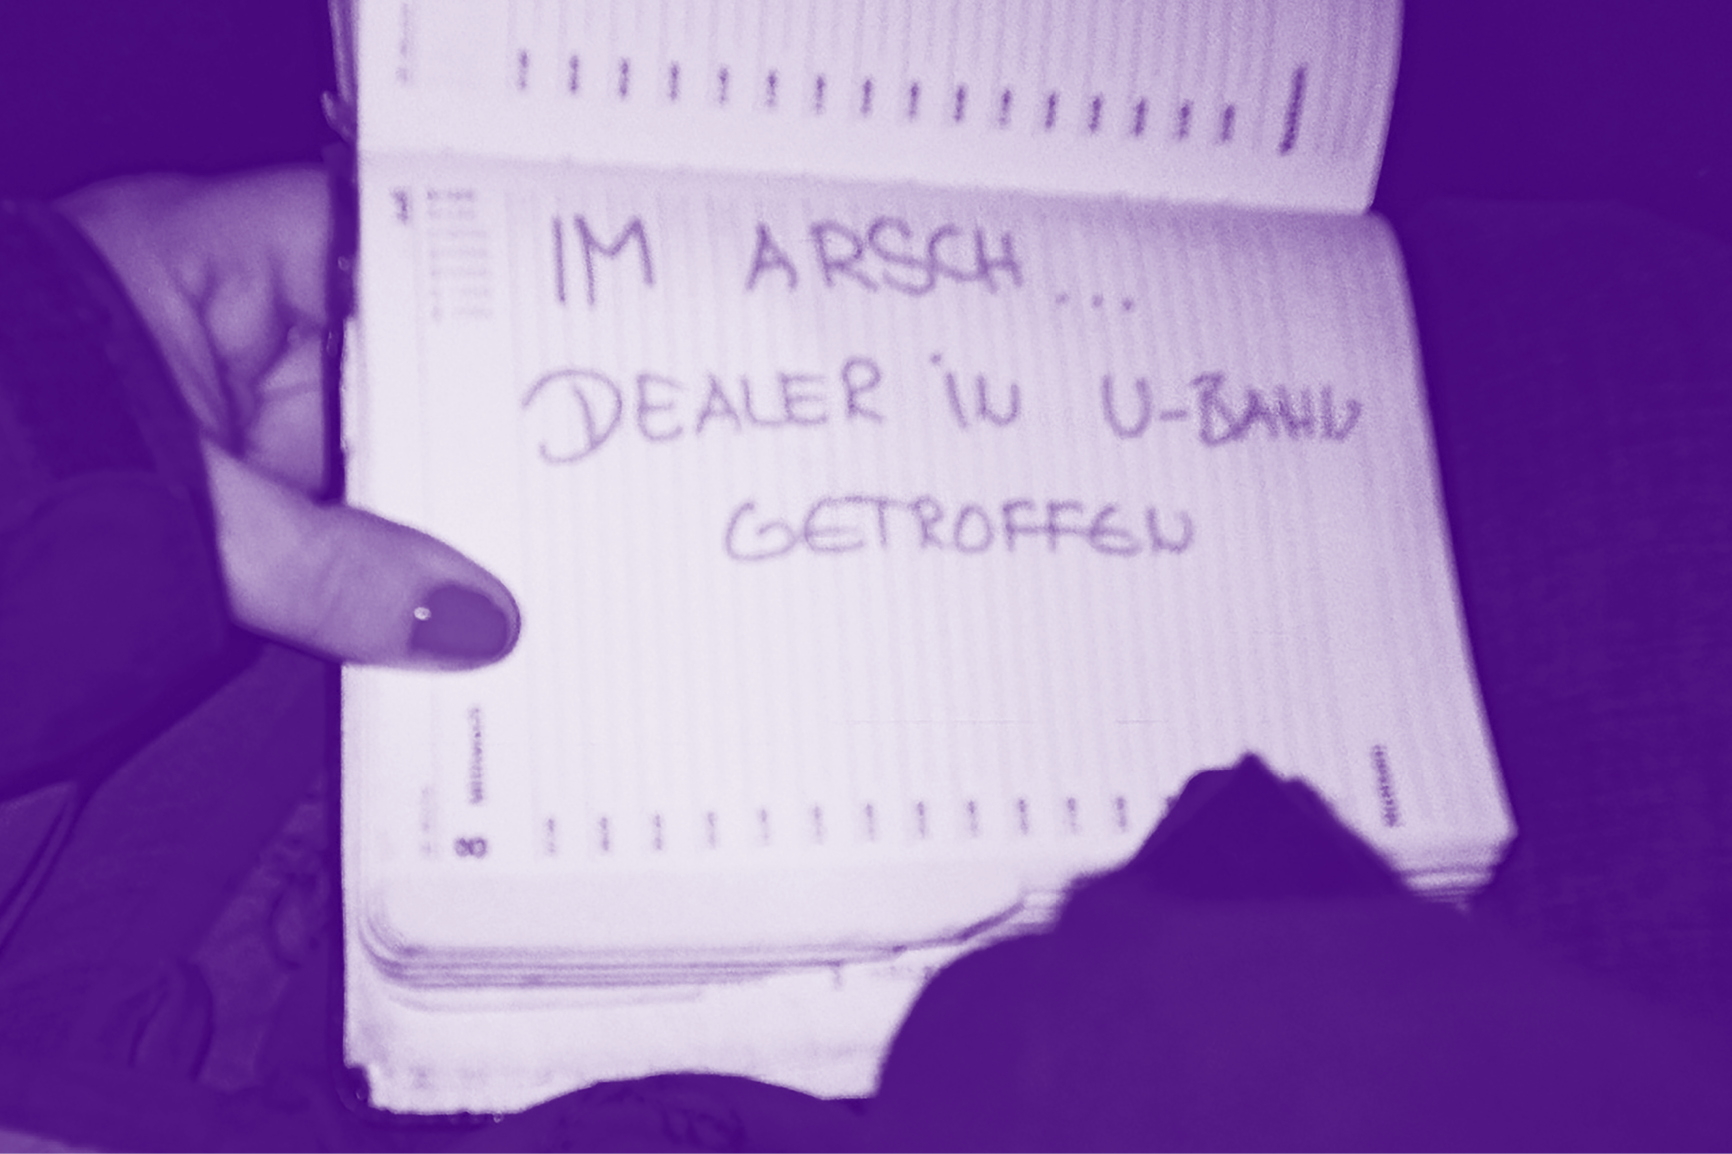 IM ARSCH...
DEALER IN U-BAHN
GETROFFEN
8 Mittwoch